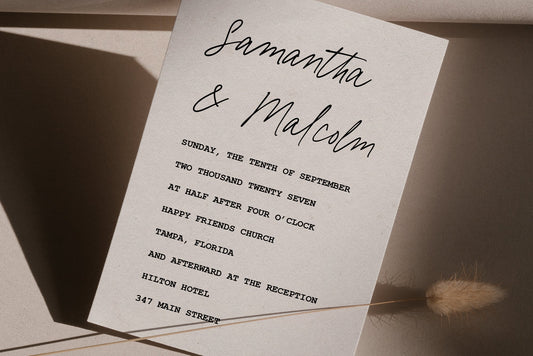 Samantha
& Malcolm
SUNDAY, THE TENTH OF SEPTEMBER
TWO THOUSAND TWENTY SEVEN
AT HALF AFTER FOUR O'CLOCK
HAPPY FRIENDS CHURCH
TAMPA, FLORIDA
AND AFTERWARD AT THE RECEPTION
HILTON HOTEL
347 MAIN STREET